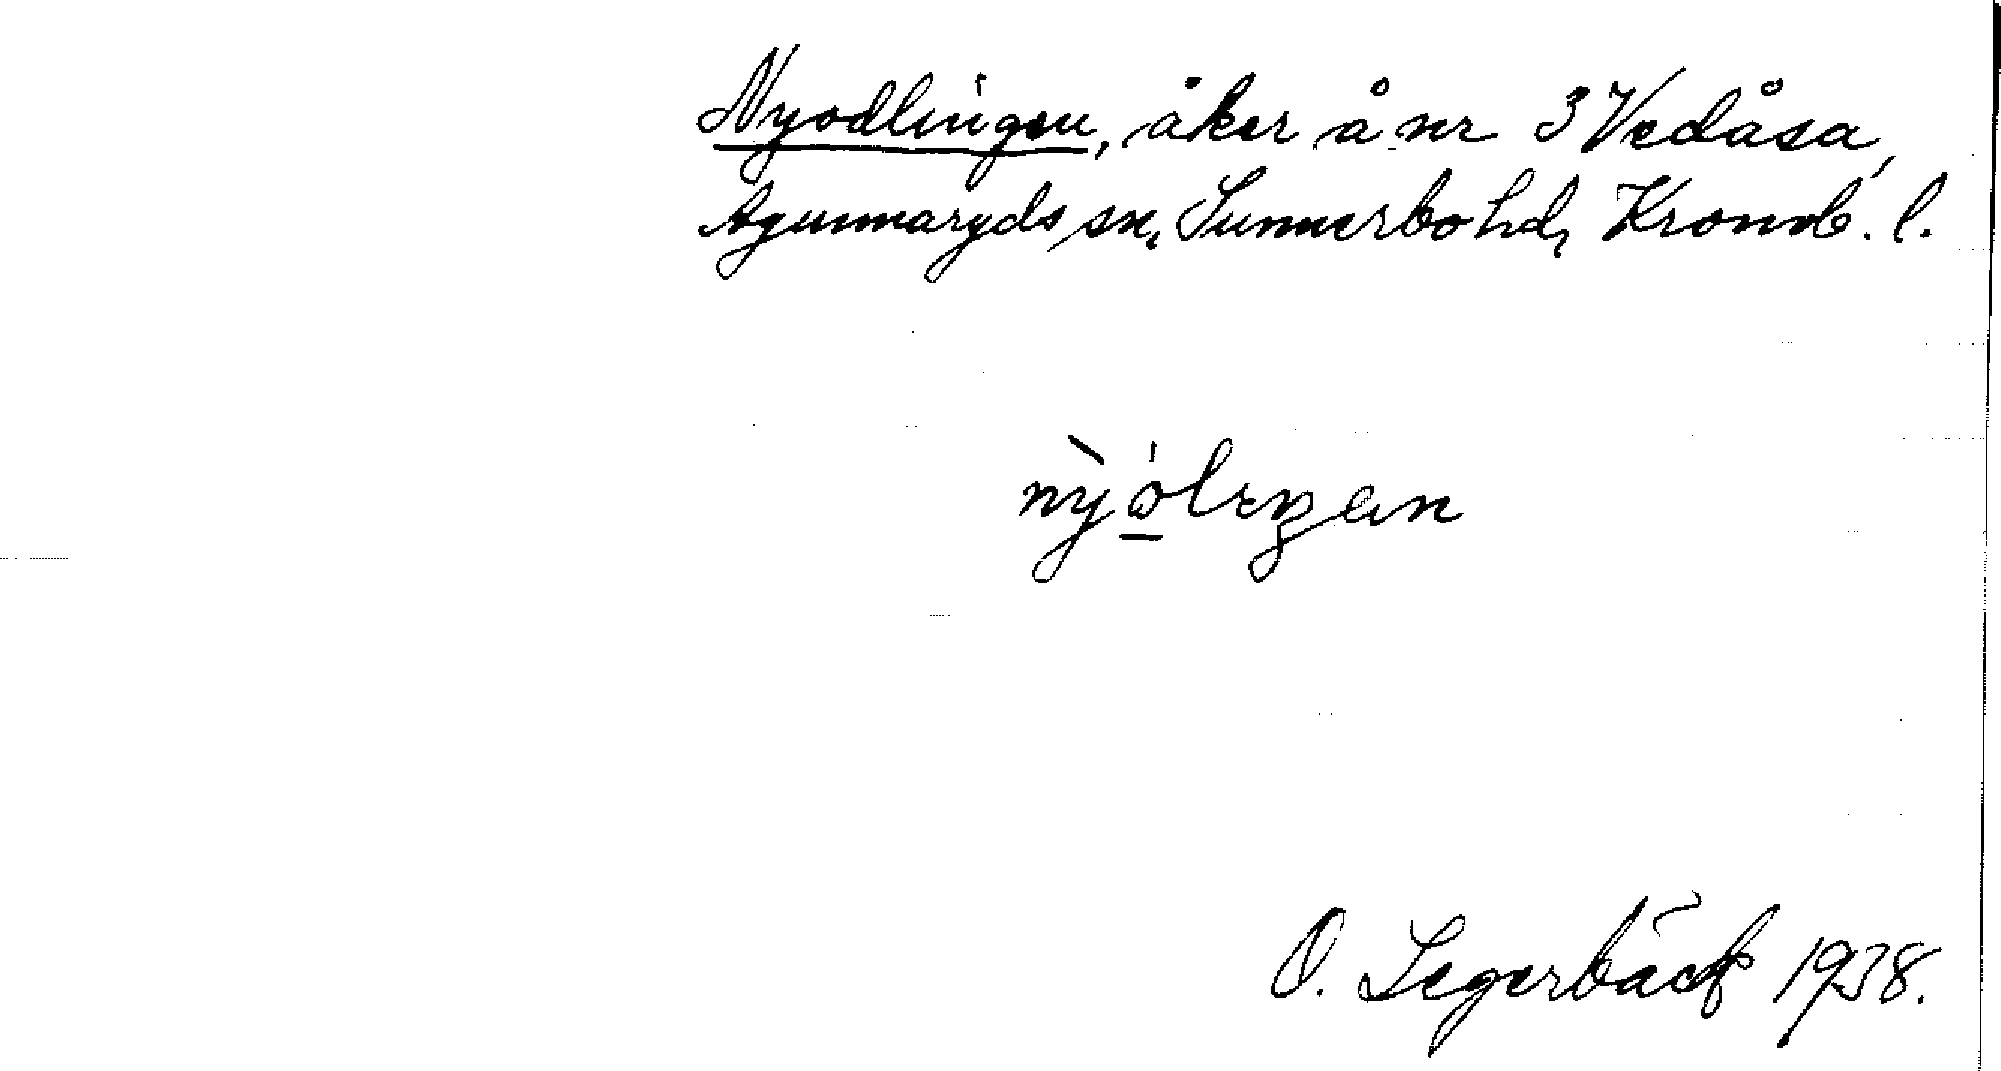 Nyodlingen, åker å nr 3 Vedåsa,
Agunnaryds sn, Sunnerbo hd, Kronob. l.
nỳólıŋen
O. Segerbäck 1938.